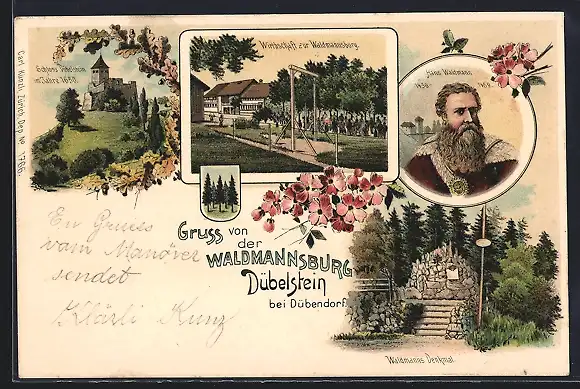 Schloss Dübelstein
im Jahre 1650.
Wirthschaft zur Waldmannsburg.
Hans Waldmann
1436-
Carl Künzli, Zürich, Dep. No 1766.
Gruss von
der
WALDMANNSBURG
Dübelstein
bei Dübendorf.
En Gruess
vom Manöver
sendet
Klärli Kunz
Waldmanns Denkmal.